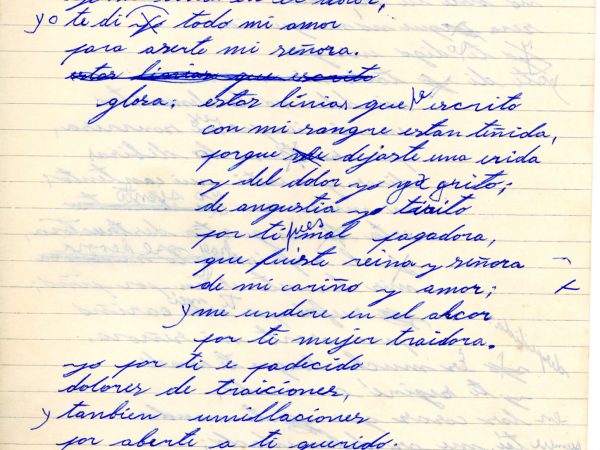 en el dolor,
yo te di todo mi amor
para aserte mi señora.
estas linias que escrito
glosa; estas línias que e escrito
con mi sangre estan teñida,
porque dejaste una erida
y del dolor yo ya grito;
de angustia yo tirito
por ti pues mal pagadora,
que fuiste reina y señora
de mi cariño y amor;
y me undere en el alcor
por ti mujer traidora.
yo por ti e padecido
dolores de traiciones,
y tanbien umillaciones
por aberte a ti querido.